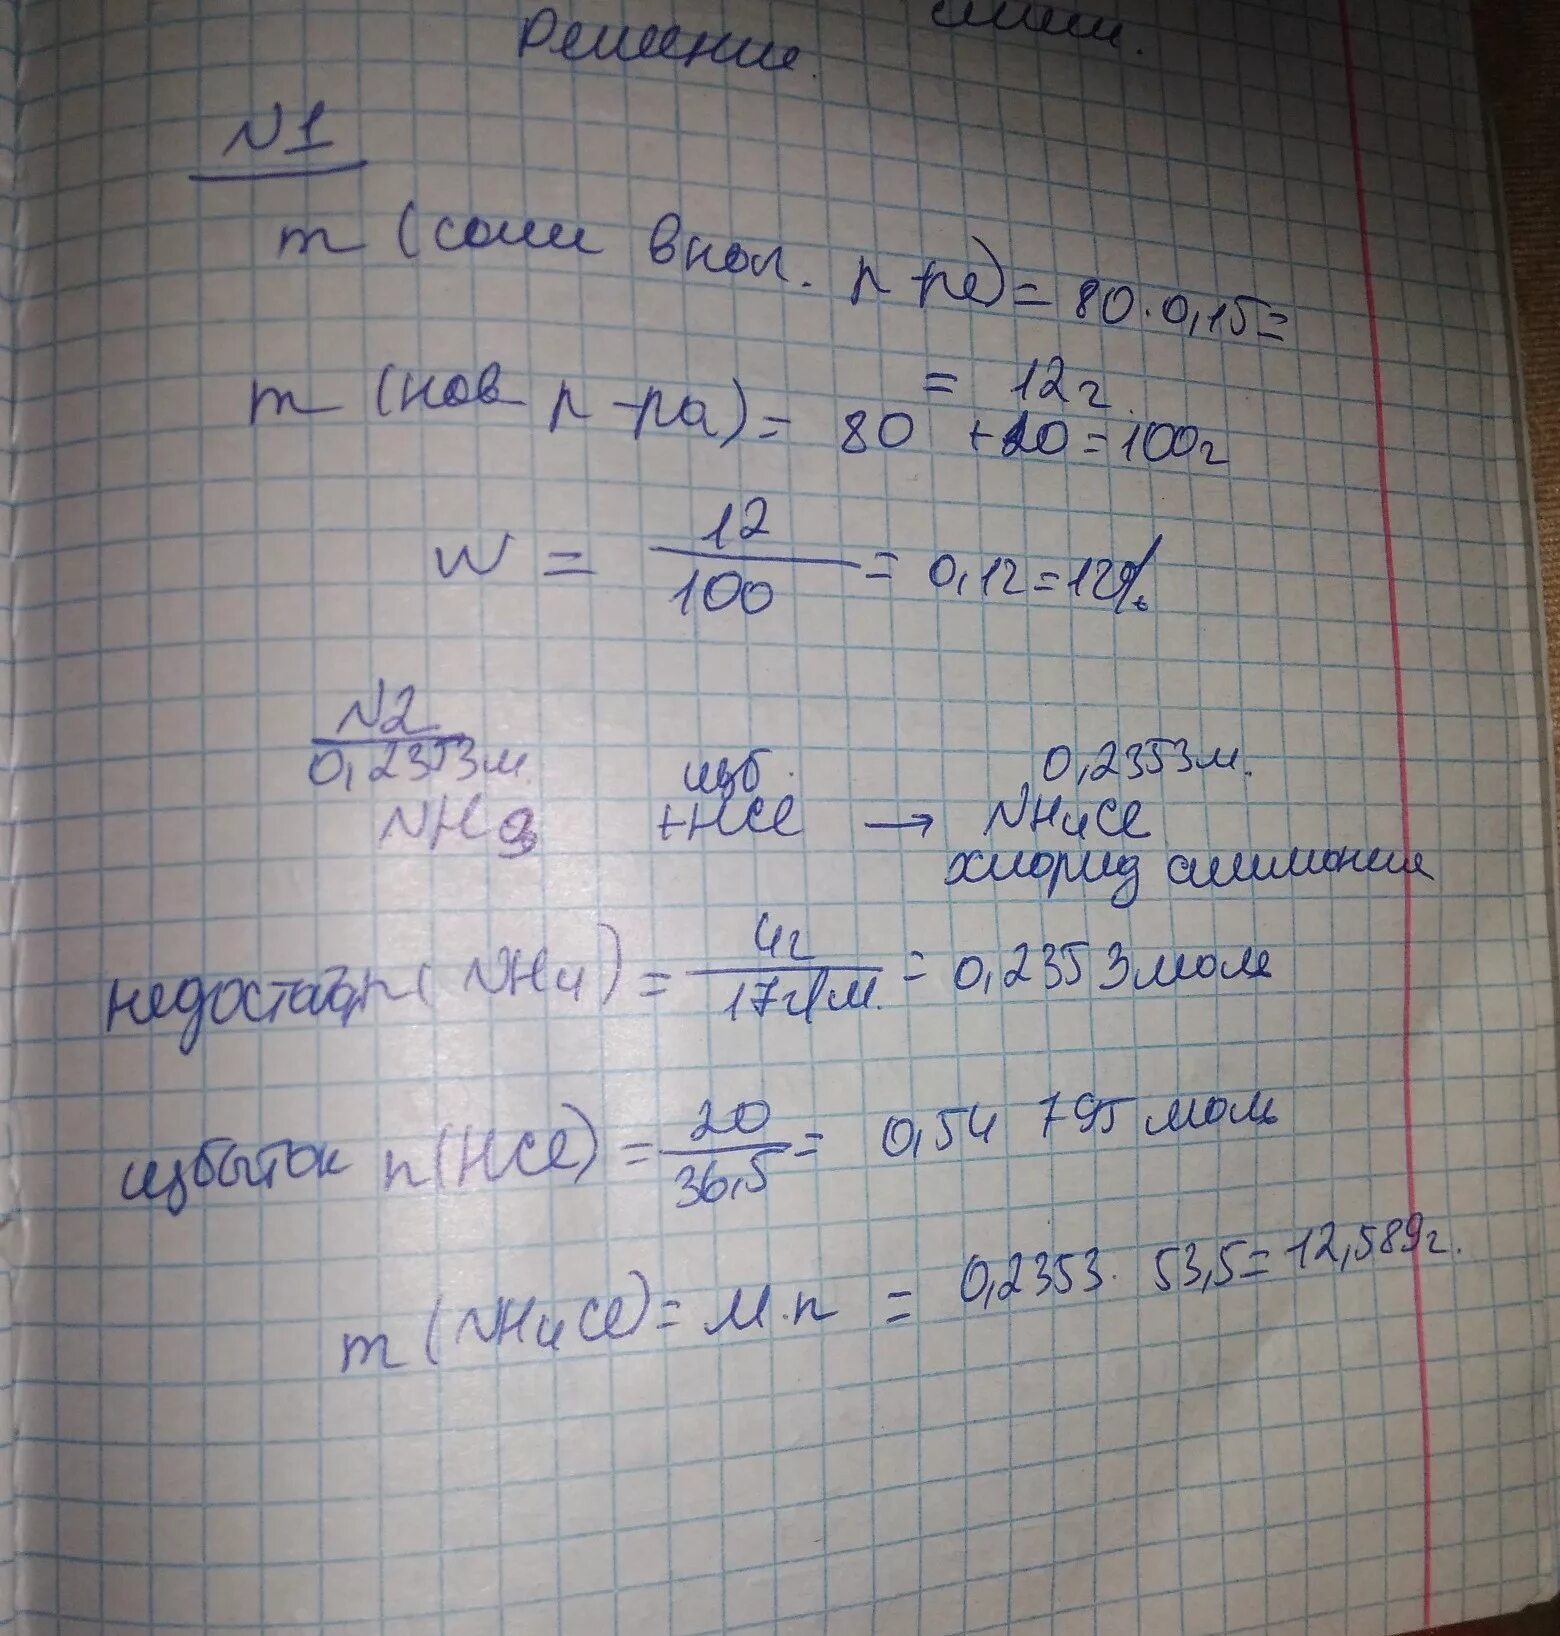 Решение.
N1
m (соли в нач. р-ре) = 80 · 0,15 =
= 12г.
m (нов р-ра) = 80 + 20 = 100г
w = 12/100 = 0,12 = 12%
N2
0,2353м. изб. 0,2353м.
NH3 + HCl → NH4Cl
хлорид аммония
n( NH4 ) = 4г/17г/м. = 0,2353 моль
избыток n(HCl) = 20/36,5 = 0,54 795 моль
m (NH4Cl) = M·n = 0,2353 · 53,5 = 12,589г.